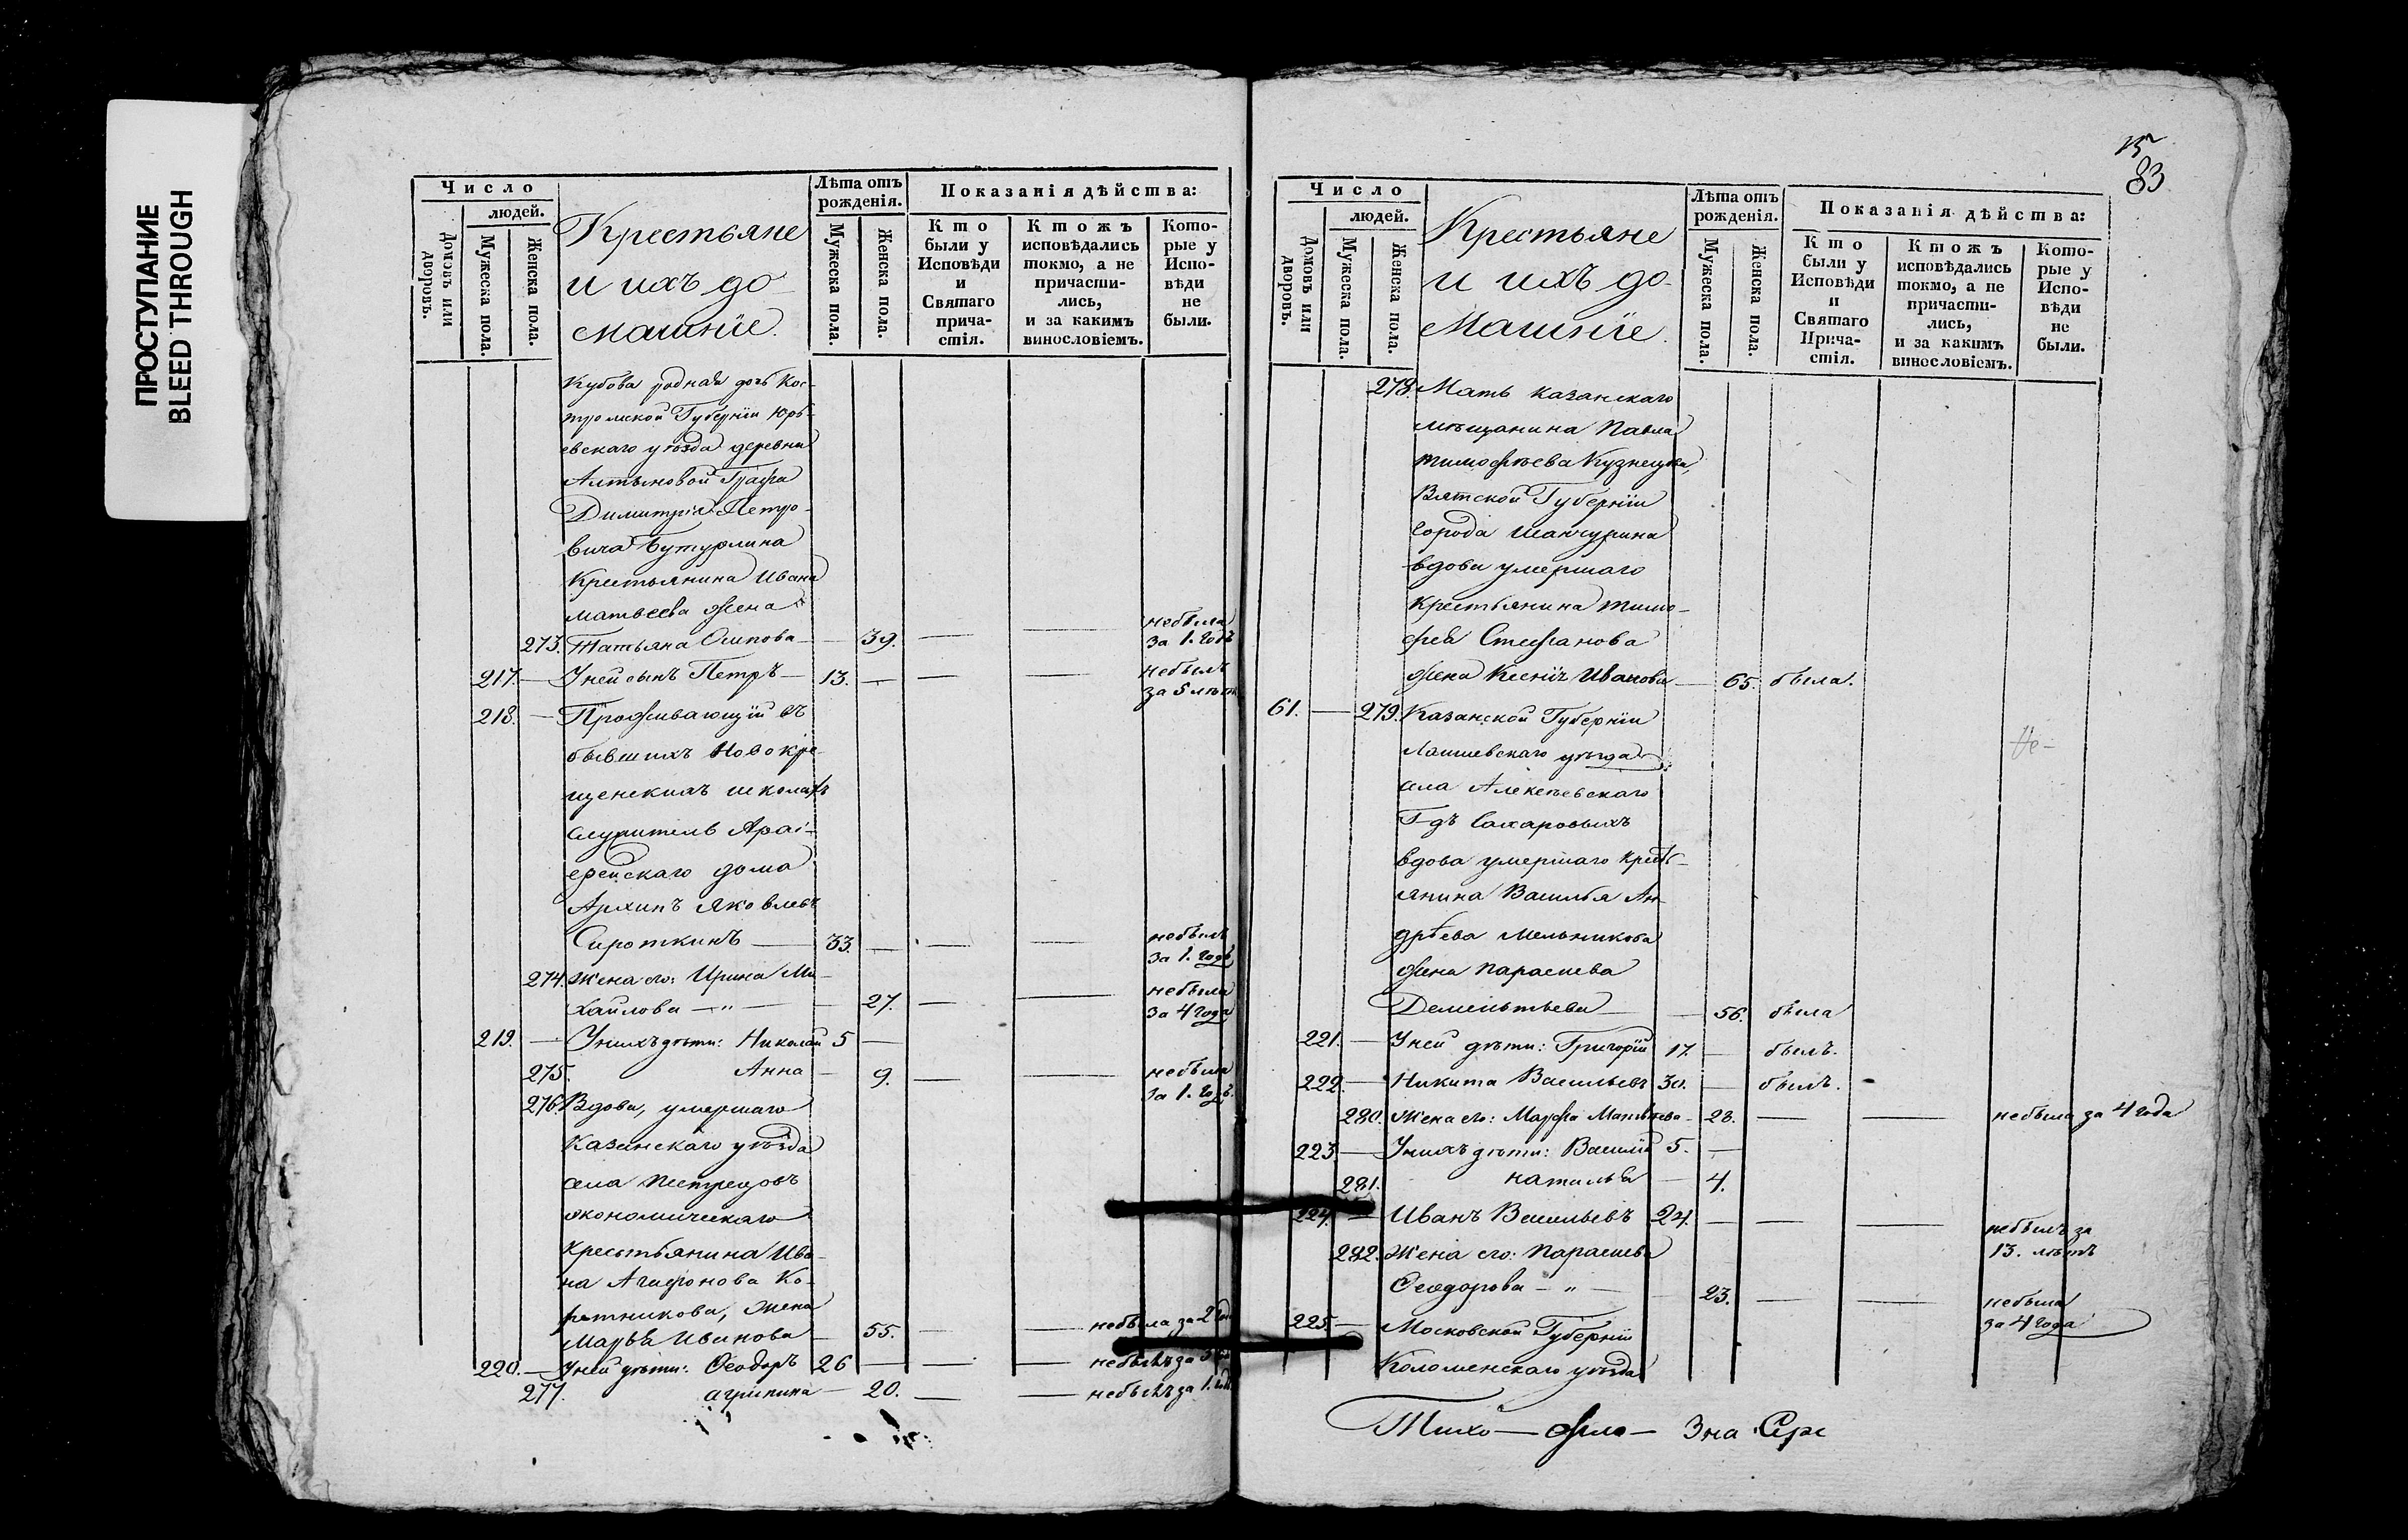 ПРОСТУПАНИЕ
BLEED THROUGH
Число
людей.
Домовъ или дворовъ.
Мужеска пола.
Женска пола.
Крестьяне
и ихъ до-
машніе.
Лѣта отъ
рожденія.
Мужеска пола.
Женска пола.
Показанія дѣйства:
Кто
были у
Исповѣди
и
Святаго
прича-
стія.
Ктожъ
исповѣдались
токмо, а не
причасти-
лись,
и за какимъ
винословіемъ.
Кото-
рые у
Испо-
вѣди
не
были.
Кубова родная дочь Кос-
тромской Губерніи Юрь-
евскаго уѣзда деревни
Алтыновой Графа
Димитрія Петро-
вича Бутурлина
Крестьянина Ивана
Матвеева жена
273. Татьяна Осипова — 39. — — небыла за 1. годъ
217. — У ней сынъ Петръ — 13. — — — небылъ за 5 лѣтъ
218. — Проживающій въ
бывшихъ Новокре-
щенскихъ школахъ
служитель Архі-
ерейскаго дома
Архипъ Яковлевъ
Сироткинъ — 33. — — — небылъ за 1. годъ
274. Жена его: Ирина Ми-
хайлова — " — 27. — — небыла за 4 года
219. — У нихъ дѣти: Николай 5 —
275. Анна — 9. — — небыла за 1. годъ.
276. Вдова, умершаго
Казанскаго уѣзда
села Пестрецовъ
экономическаго
Крестьянина Ива-
на Агафонова Ко-
ретникова, жена
Марья Иванова — 55. — — небыла за 2 года
220. — У ней дѣти: Ѳеодоръ 26 — — — небылъ за 3
277. Агрипина — 20. — — небылъ за 1. годъ
15
83
Число
людей.
Домовъ или дворовъ.
Мужеска пола.
Женска пола.
Крестьяне
и ихъ до-
машніе.
Лѣта отъ
рожденія.
Мужеска пола.
Женска пола.
Показанія дѣйства:
Кто
были у
Исповѣди
и
Святаго
Прича-
стія.
Ктожъ
исповѣдались
токмо, а не
причасти-
лись,
и за какимъ
винословіемъ.
Кото-
рые у
Испо-
вѣди
не
были.
278. Мать казанскаго
мѣщанина Павла
Тимофѣева Кузнецова,
Вятской Губерніи
города Шанчурина
вдова умершаго
крестьянина Тимо-
фея Стефанова
жена Ксенія Иванова — 65. была.
61. — 279. Казанской Губерніи
Лаишевскаго уѣзда
села Алексѣевскаго
Г-дъ Сахаровыхъ
вдова умершаго кресть-
янина Василья Ан-
дрѣева Мельникова
жена Параскева
Дементьева — 56. была
221. — У ней дѣти: Григорій 17. — былъ.
222. — Никита Васильевъ 30. — былъ.
280. Жена его: Марфа Матвѣева — 28. — — небыла за 4 года
223. — У нихъ дѣти: Василій 5. —
281. Наталья — 4.
224. — Иванъ Васильевъ 24. — — — небылъ за 13. лѣтъ
282. Жена его: Параскева
Ѳеодорова — " — 23. — — небыла за 4 года
225. — Московской Губерніи
Коломенскаго уѣзда
Не-